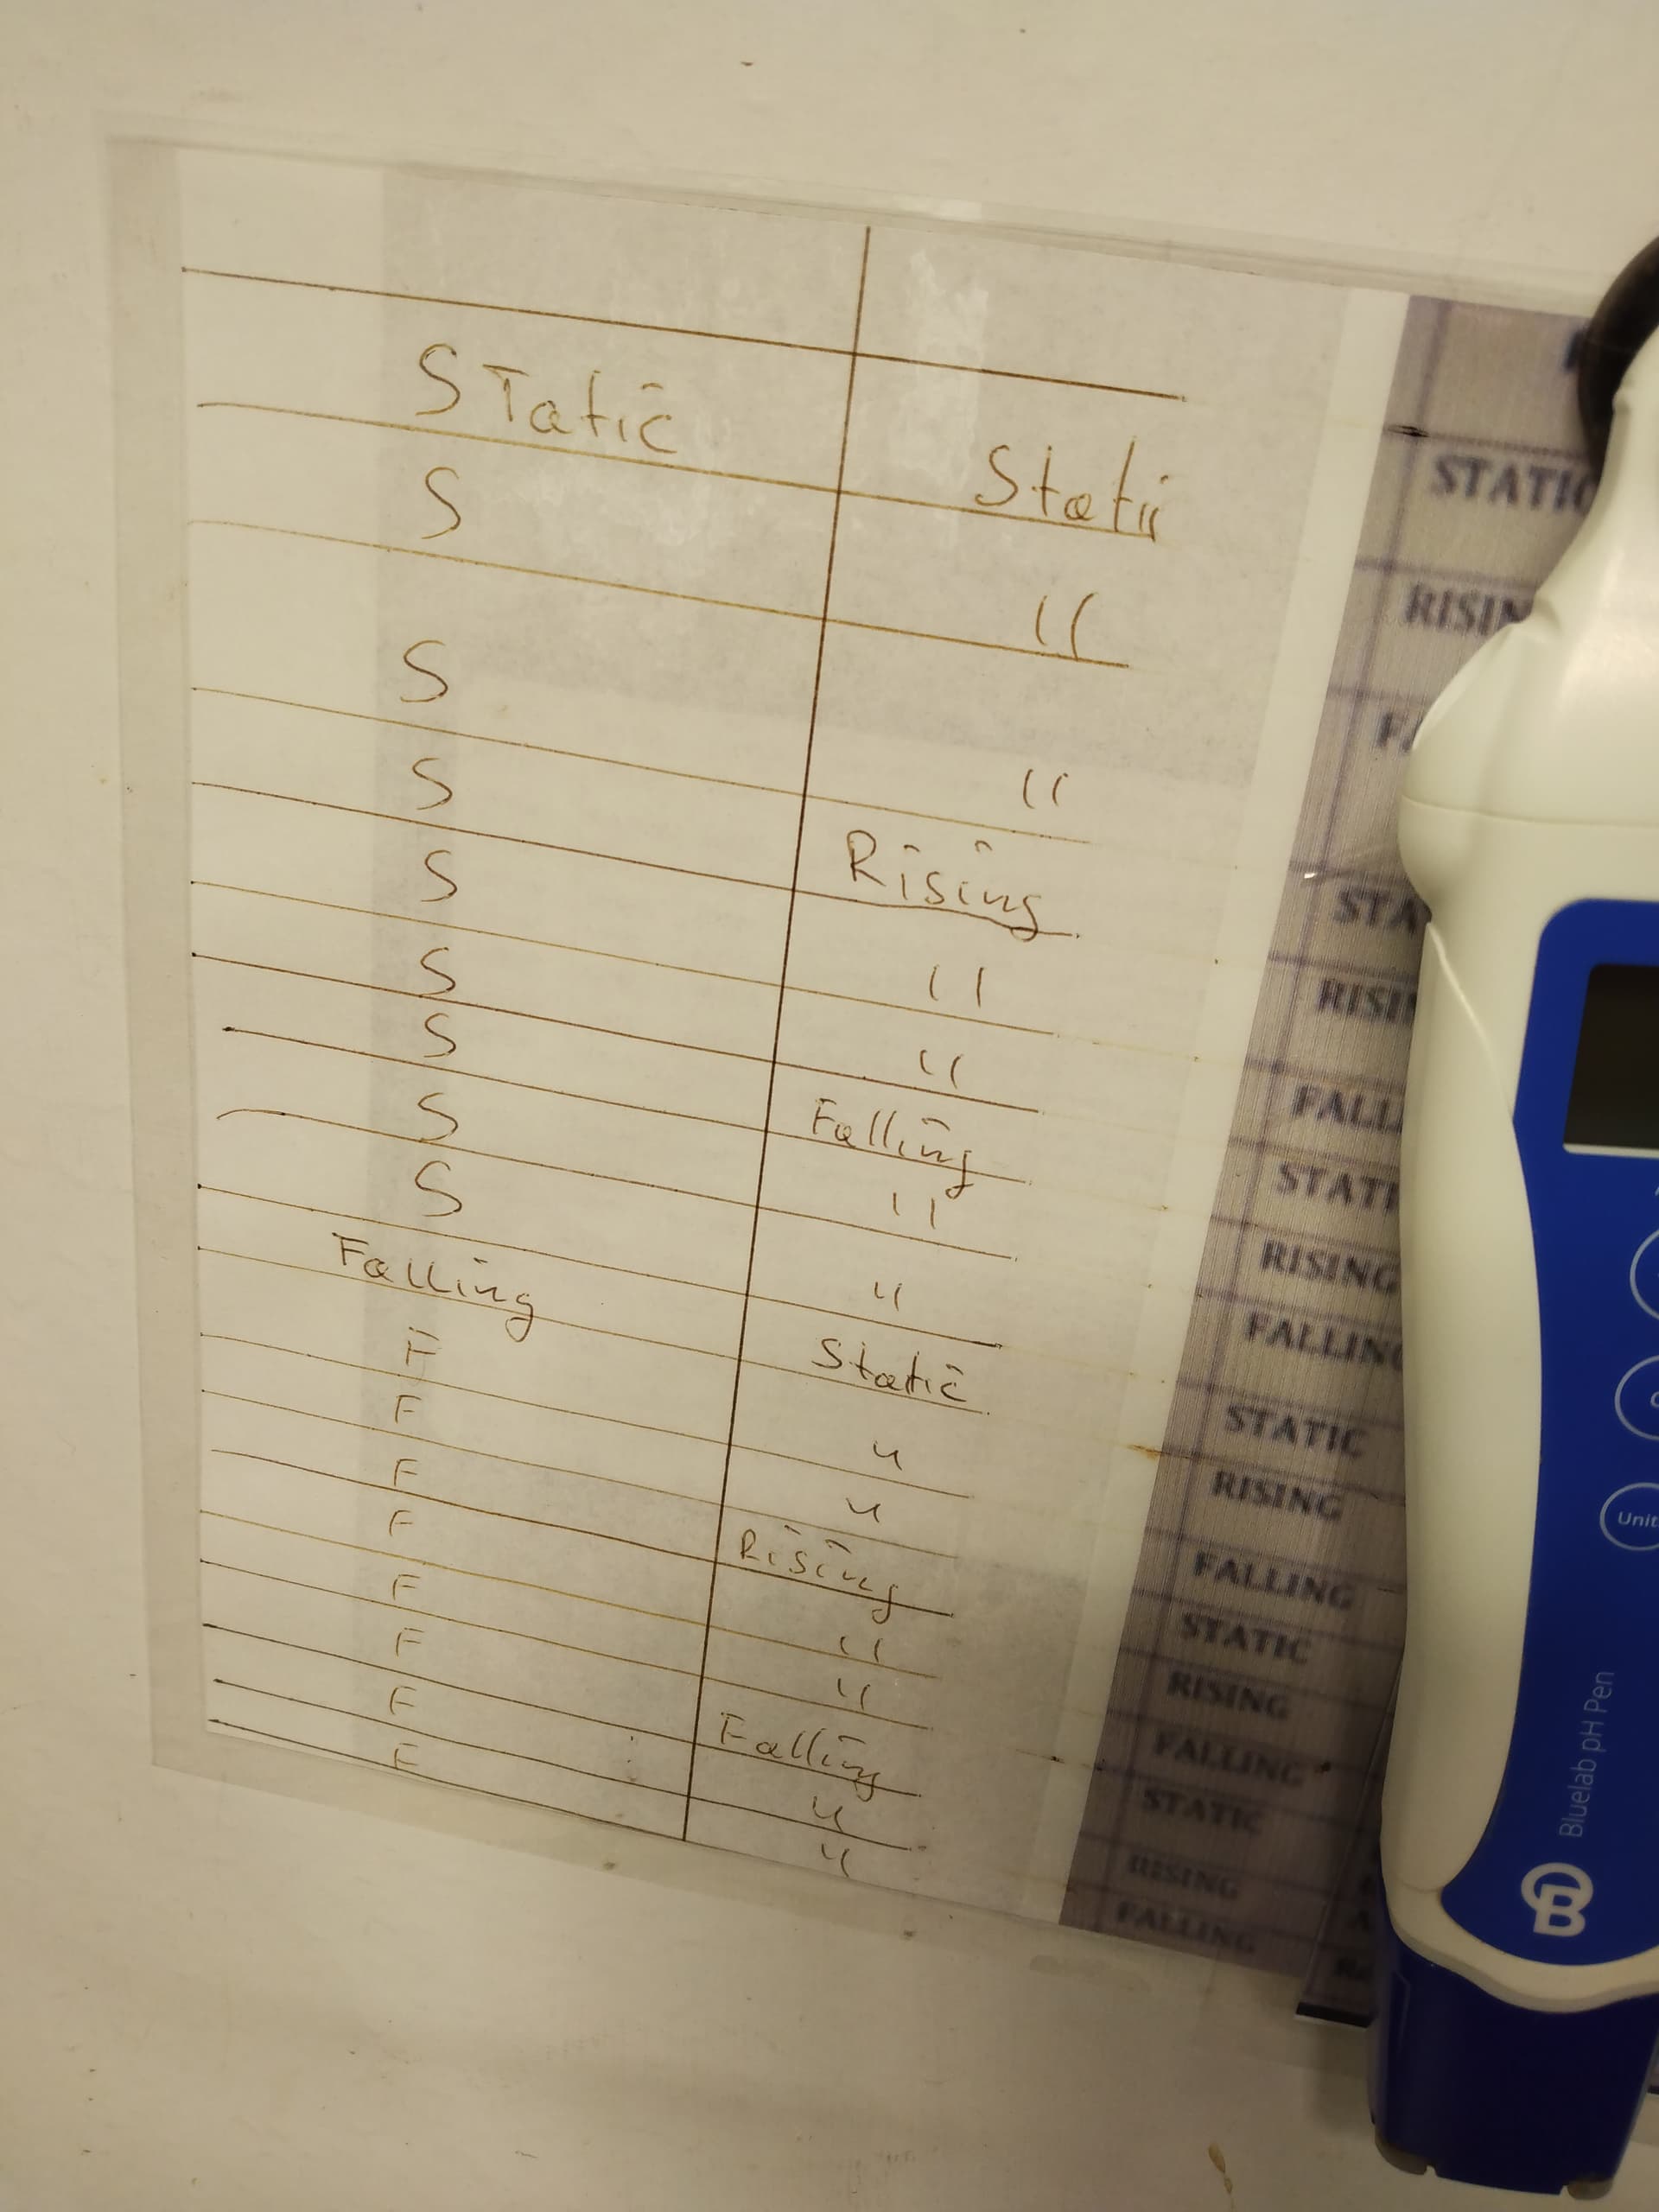 STatic Static STATIC
S " RISIN
S " FA
S Rising STA
S " RISIN
S " FALL
S Falling STATI
S " RISING
S " FALLING
Falling Static STATIC
F " RISING
F " FALLING
F Rising STATIC
F " RISING
F " FALLING
F Falling STATIC
F " RISING
F " FALLING
Unit
Bluelab pH Pen
B